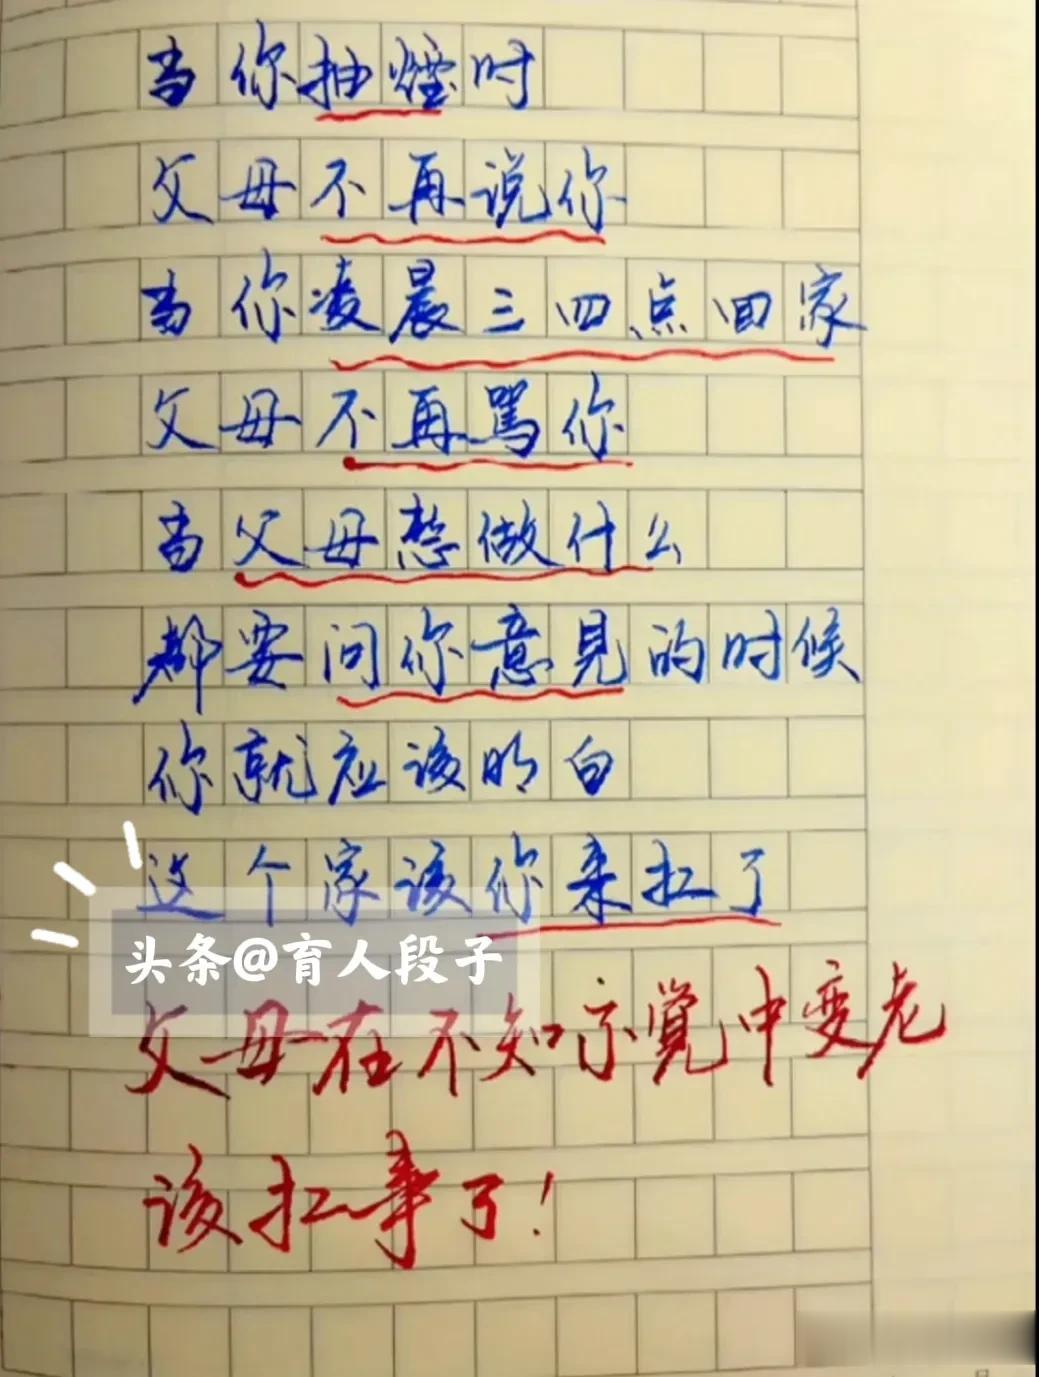 当你抽煙时
父母不再说你
当你凌晨三四点回家
父母不再骂你
当父母想做什么
都要问你意見的时候
你就应该明白
这个家该你来扛了
头条@育人段子
父母在不知不觉中变老
该扛事了!